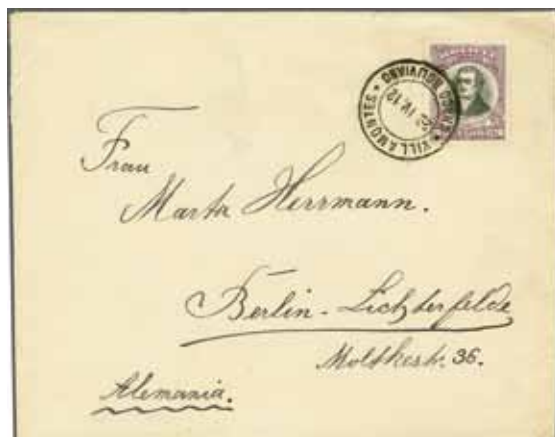 VILLAMONTES
CHACO BOLIVIANO
IV.12
Frau
Marta Herrmann.
Berlin-Lichterfelde
Moltkestr. 36.
Alemania.